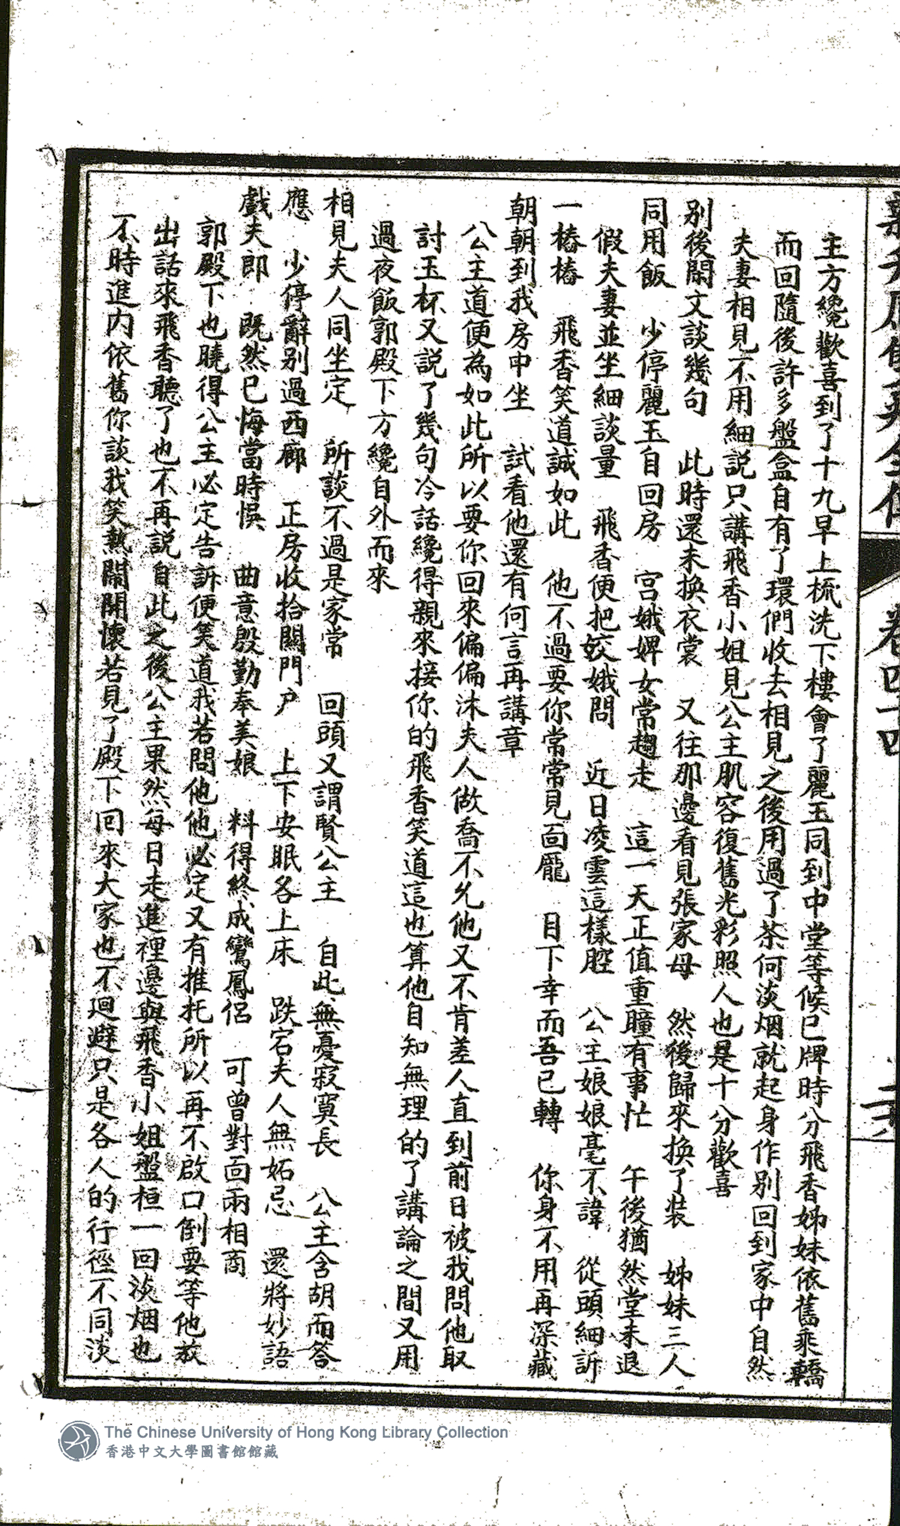 主方纔歡喜到了十九早上梳洗下樓會了麗玉同到中堂等候巳牌時分飛香姊妹依舊乘轎
而回隨後許多盤盒自有了環們收去相見之後用過了茶何淡烟就起身作別回到家中自然
夫妻相見不用細説只講飛香小姐見公主肌容復舊光彩照人也是十分歡喜
別後閑文談幾句　此時還未換衣裳　又往那邊看見張家母　然後歸來換了装　姊妹三人
同用飯　少停麗玉自回房　宮娥婢女常趨走　這一天正值重瞳有事忙　午後猶然堂未退
假夫妻並坐細談量　飛香便把姣娥問　近日凌雲這樣腔　公主娘娘毫不諱　從頭細訴
一樁樁　飛香笑道誠如此　他不過要你常常見面龐　目下幸而吾已轉　你身不用再深藏
朝朝到我房中坐　試看他還有何言再講章
公主道便為如此所以要你回來偏偏沐夫人做喬不允他又不肯差人直到前日被我問他取
討玉杯又説了幾句冷話纔得親來接你的飛香笑道這也算他自知無理的了講論之間又用
過夜飯郭殿下方纔自外而來
相見夫人同坐定　所談不過是家常　回頭又謂賢公主　自此無憂寂寞長　公主含胡而答
應　少停辭别過西廊　正房收拾關門户　上下安眠各上床　跌宕夫人無妬忌　還將妙語
戲夫郎　既然已悔當時悞　曲意殷勤奉美娘　料得終成鸞鳳侣　可曾對面兩相商
郭殿下也曉得公主必定告訴便笑道我若問他他必定又有推托所以再不啟口倒要等他放
出話來飛香聽了也不再説自此之後公主果然每日走進裡邊與飛香小姐盤桓一回淡烟也
不時進内依舊你談我笑熱鬧開懷若見了殿下回來大家也不迴避只是各人的行徑不同淡
卷四十四
The Chinese University of Hong Kong Library Collection
香港中文大學圖書館館藏